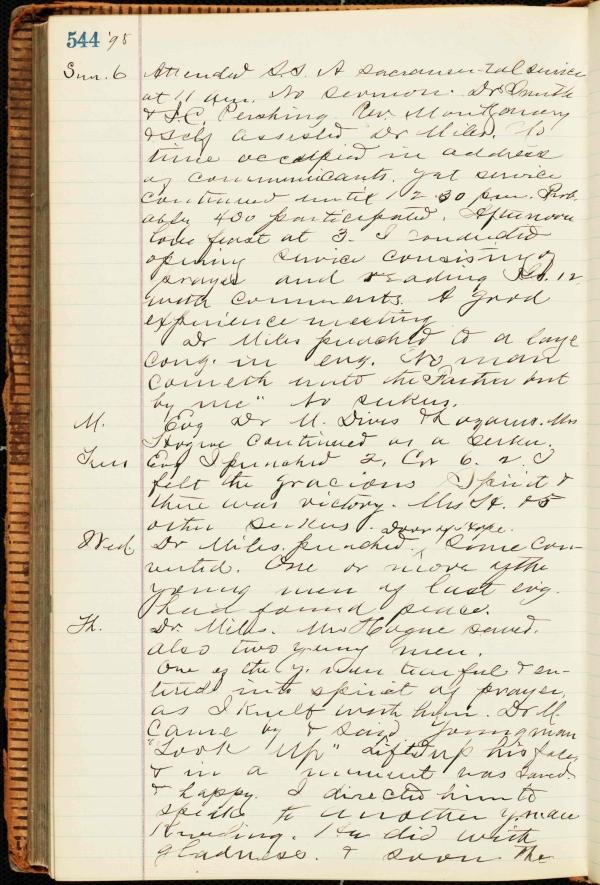 544 '98
Sun. 6 Attended S.S. A sacramental service
at 11 am. No sermon. Dr. Smith
& I.C. Pershing Rev. Montgomery
& self assisted Dr Miles. No
time occupied in address
of communicants. yet service
continued until 12.30 pm. Prob
ably 400 participated. Afternoon
love feast at 3. I conducted
opening service consisting of
prayer and reading 12,
with comments. A good
experience meeting
Dr Miles preached to a large
cong. in evg. "No man
cometh unto the Father but
by me" No seekers.
M. Evg Dr M. Dives & Lazarus. Mrs
Hogue continued as a seeker.
Tues Evg I preached 2, Cor 6. 2 I
felt the gracious Spirit &
there was victory. Mrs H. & 5
other seekers. Door of Hope.
Wed Dr Miles. preached. Some con-
verted. One or more of the
young men of last evg.
had found peace.
Th. Dr. Miles. Mrs Hogue saved.
also two young men.
One of the y. men tearful & en-
tered into spirit of prayer,
as I knelt with him. Dr M.
came by & said Young man
"Look Up" Lifted up his face
& in a moment was saved
& happy. I directed him to
speak to another y. man
kneeling. He did with
gladness. & soon the